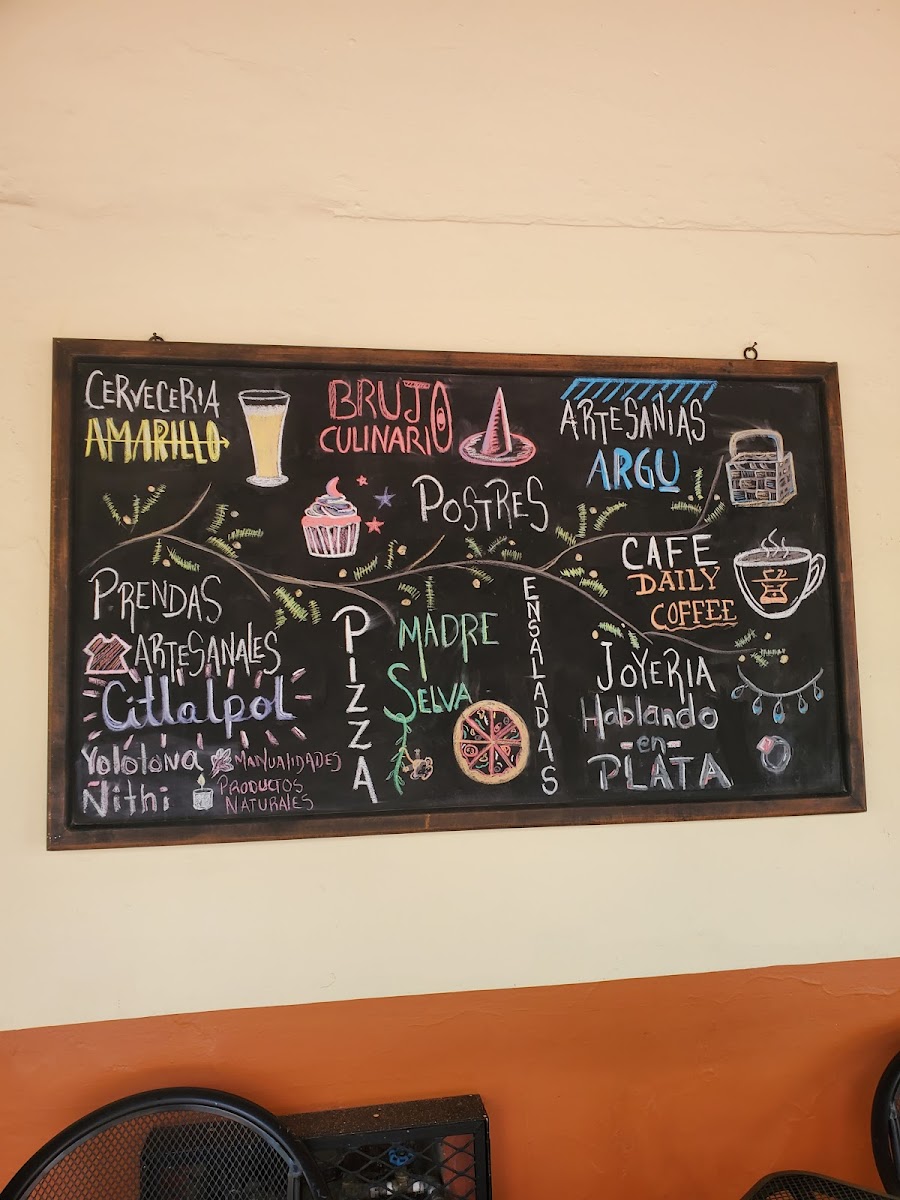 CERVECERIA
AMARILLO
BRUJO
CULINARIO
POSTRES
ARTESANIAS
ARGU
CAFE
DAILY
COFFEE
PRENDAS
ARTESANALES
Citlalpol
Yololova MANUALIDADES
Ñithi PRODUCTOS
NATURALES
PIZZA
MADRE
SELVA
ENSALADAS
JOYERIA
Hablando
-en-
PLATA